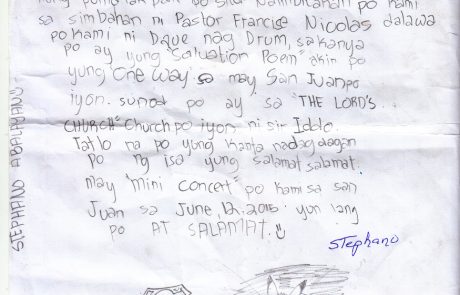 po sila Naimbitahan po kami
sa simbahan ni Pastor Francise Nicolas dalawa
po kami ni Dave nag Drum, sakanya
po ay yung "Saluation Poem" akin po
yung "One way" sa may San Juan po
iyon. sunod po ay sa "THE LORD'S
CHURCH" Church po iyon ni sir Iddo.
Tatlo na po yung kanta nadagdagan
po ng isa yung salamat salamat.
may "mini concert" po kami sa san
Juan sa June, 12, 2015 yun lang
po AT SALAMAT.
Stephano
STEPHANO